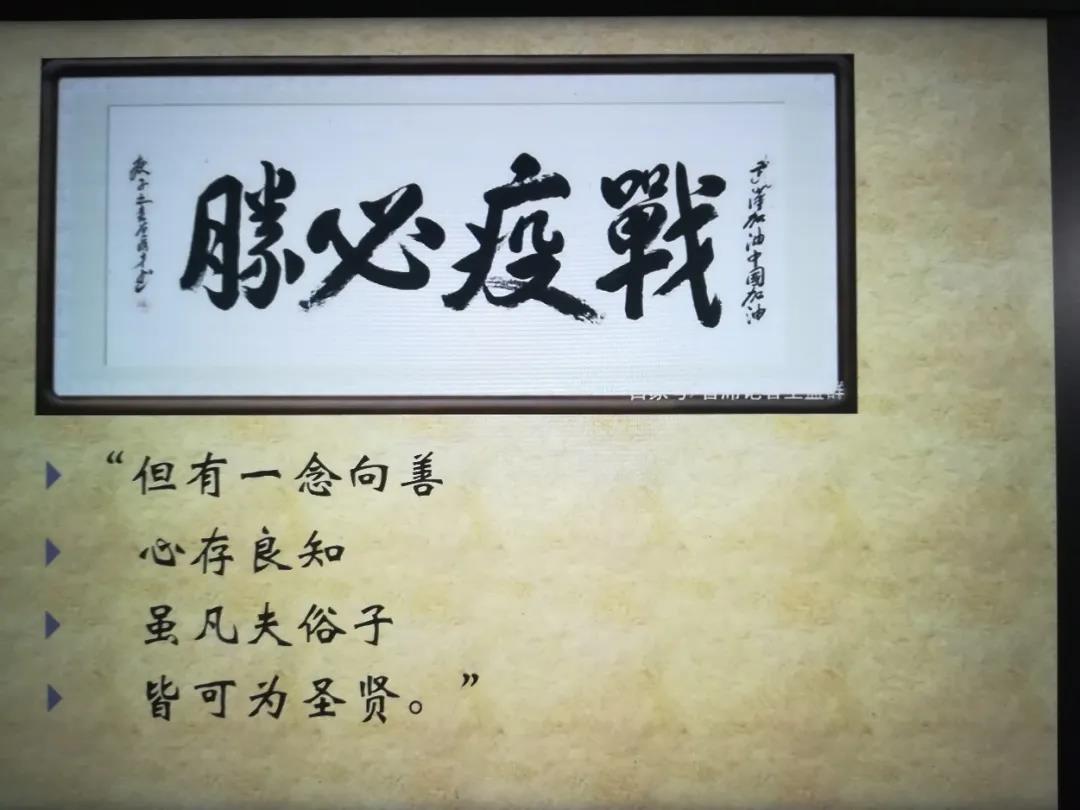 武漢加油中國加油
戰疫必勝
“但有一念向善
心存良知
虽凡夫俗子
皆可为圣贤。”